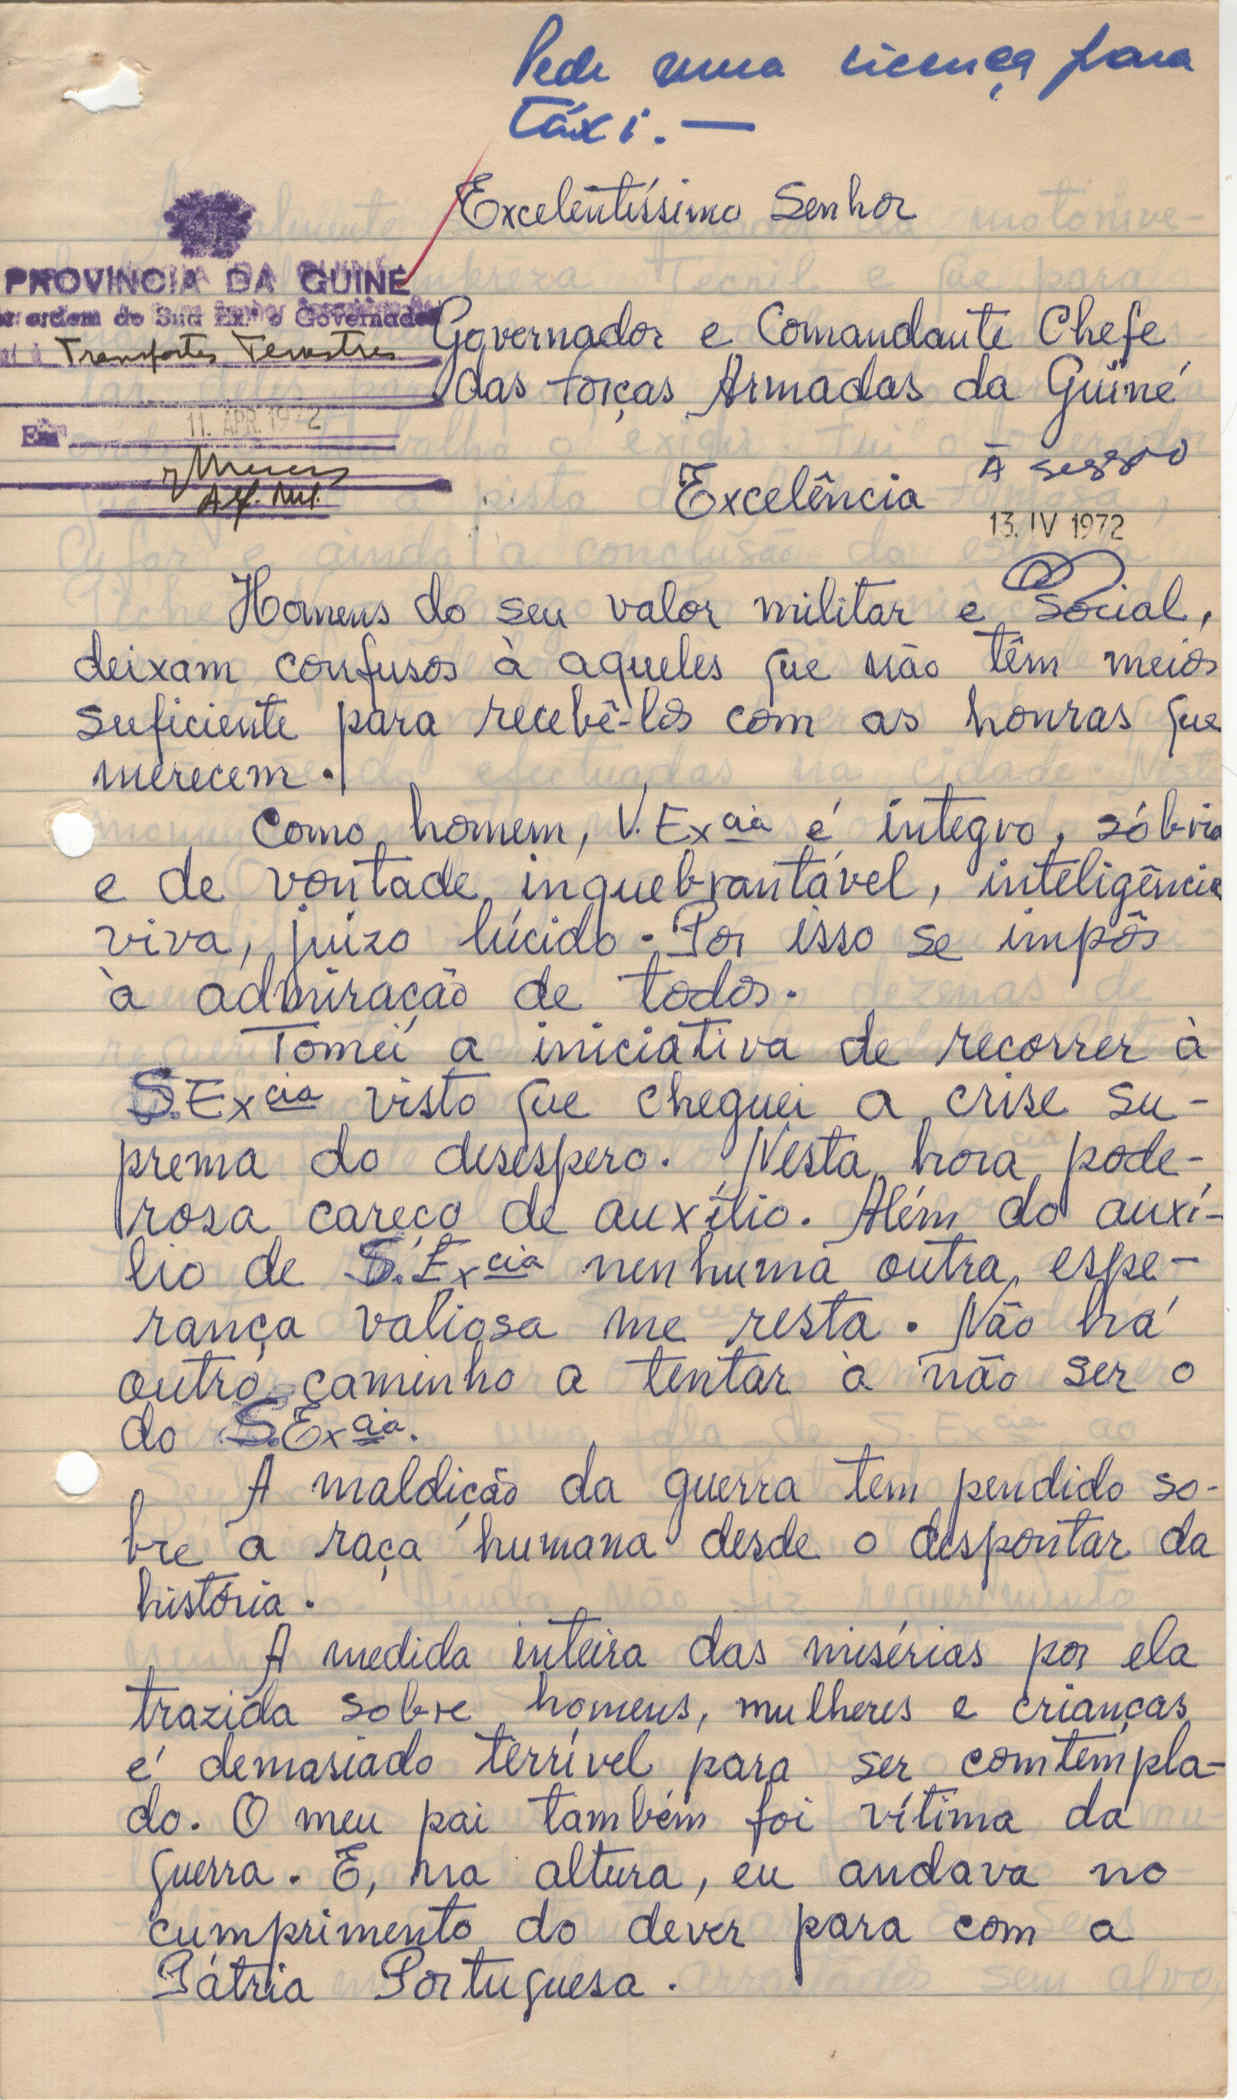 Pede uma licença para
táxi. —
Excelentíssimo Senhor
PROVINCIA DA GUINÉ
ordem de Sua Ex.ª o Governador
Transportes Terrestres
Governador e Comandante Chefe
das Forças Armadas da Guiné
Em 11. ABR. 1972
À secção
Excelência
13. IV 1972
Homens do seu valor militar e Social,
deixam confusos à aqueles que não têm meios
suficiente para recebê-los com as honras que
merecem.
Como homem, V. Excia é íntegro, sóbrio
e de vontade inquebrantável, inteligência
viva, juizo lúcido. Por isso se impôs
à admiração de todos.
Tomei a iniciativa de recorrer à
S. Excia visto que cheguei a crise su-
prema do desespero. Nesta hora pode-
rosa careço de auxílio. Além do auxí-
lio de S. Excia nenhuma outra espe-
rança valiosa me resta. Não há
outro caminho a tentar à não ser o
do S. Excia.
A maldição da guerra tem pendido so-
bre a raça humana desde o despontar da
história.
A medida inteira das misérias por ela
trazida sobre homens, mulheres e crianças
é demasiado terrível para ser comtempla-
do. O meu pai também foi vítima da
guerra. E, na altura, eu andava no
cumprimento do dever para com a
Pátria Portuguesa.